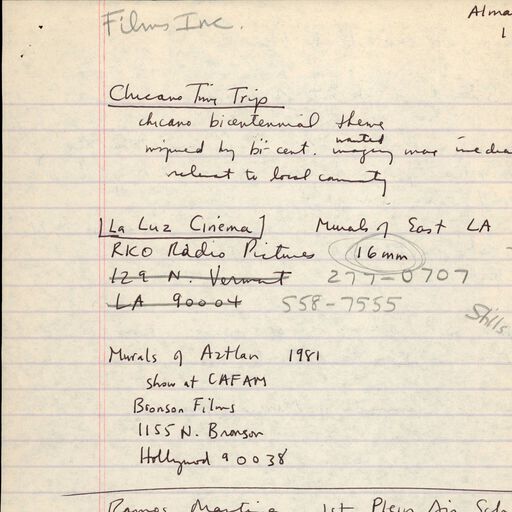 Films Inc.
Alma
1
Chicano Time Trip
chicano bicentennial theme
inspired by bi-cent. wanted imagery more immedia
relevant to local community
[La Luz Cinema] Murals of East LA
RKO Radio Pictures 16mm
129 N. Vermont 277-0707
LA 90004 558-7555
Stills
Murals of Aztlan 1981
show at CAFAM
Bronson Films
1155 N. Bronson
Hollywood 90038
Ramos Martinez 1st Plein Air Sch